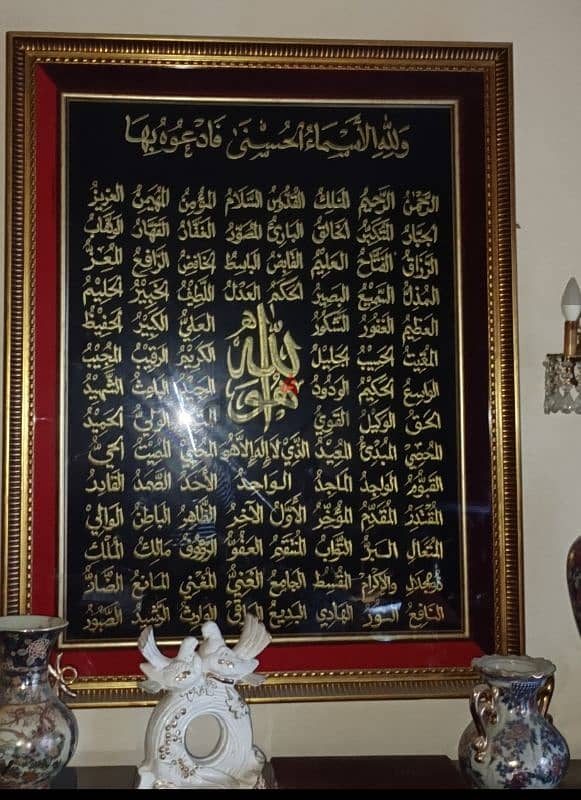 ولله الأسماء الحسنى فادعوه بها
الرحمن الرحيم الملك القدوس السلام المؤمن المهيمن العزيز
الجبار المتكبر الخالق البارئ المصور الغفار القهار الوهاب
الرزاق الفتاح العليم القابض الباسط الخافض الرافع المعز
المذل السميع البصير الحكم العدل اللطيف الخبير الحليم
العظيم الغفور الشكور العلي الكبير الحفيظ
المقيت الحسيب الجليل الكريم الرقيب المجيب
هو الله
الواسع الحكيم الودود المجيد الباعث الشهيد
الحق الوكيل القوي الولي الحميد
المحصي المبدئ المعيد الذي لا إله إلا هو المحيي المميت الحي
القيوم الواجد الماجد الواحد الأحد الصمد القادر
المقتدر المقدم المؤخر الأول الآخر الظاهر الباطن الوالي
المتعال البر التواب المنتقم العفو الرؤوف مالك الملك
ذو الجلال والإكرام المقسط الجامع الغني المغني المانع الضار
النافع النور الهادي البديع الباقي الوارث الرشيد الصبور